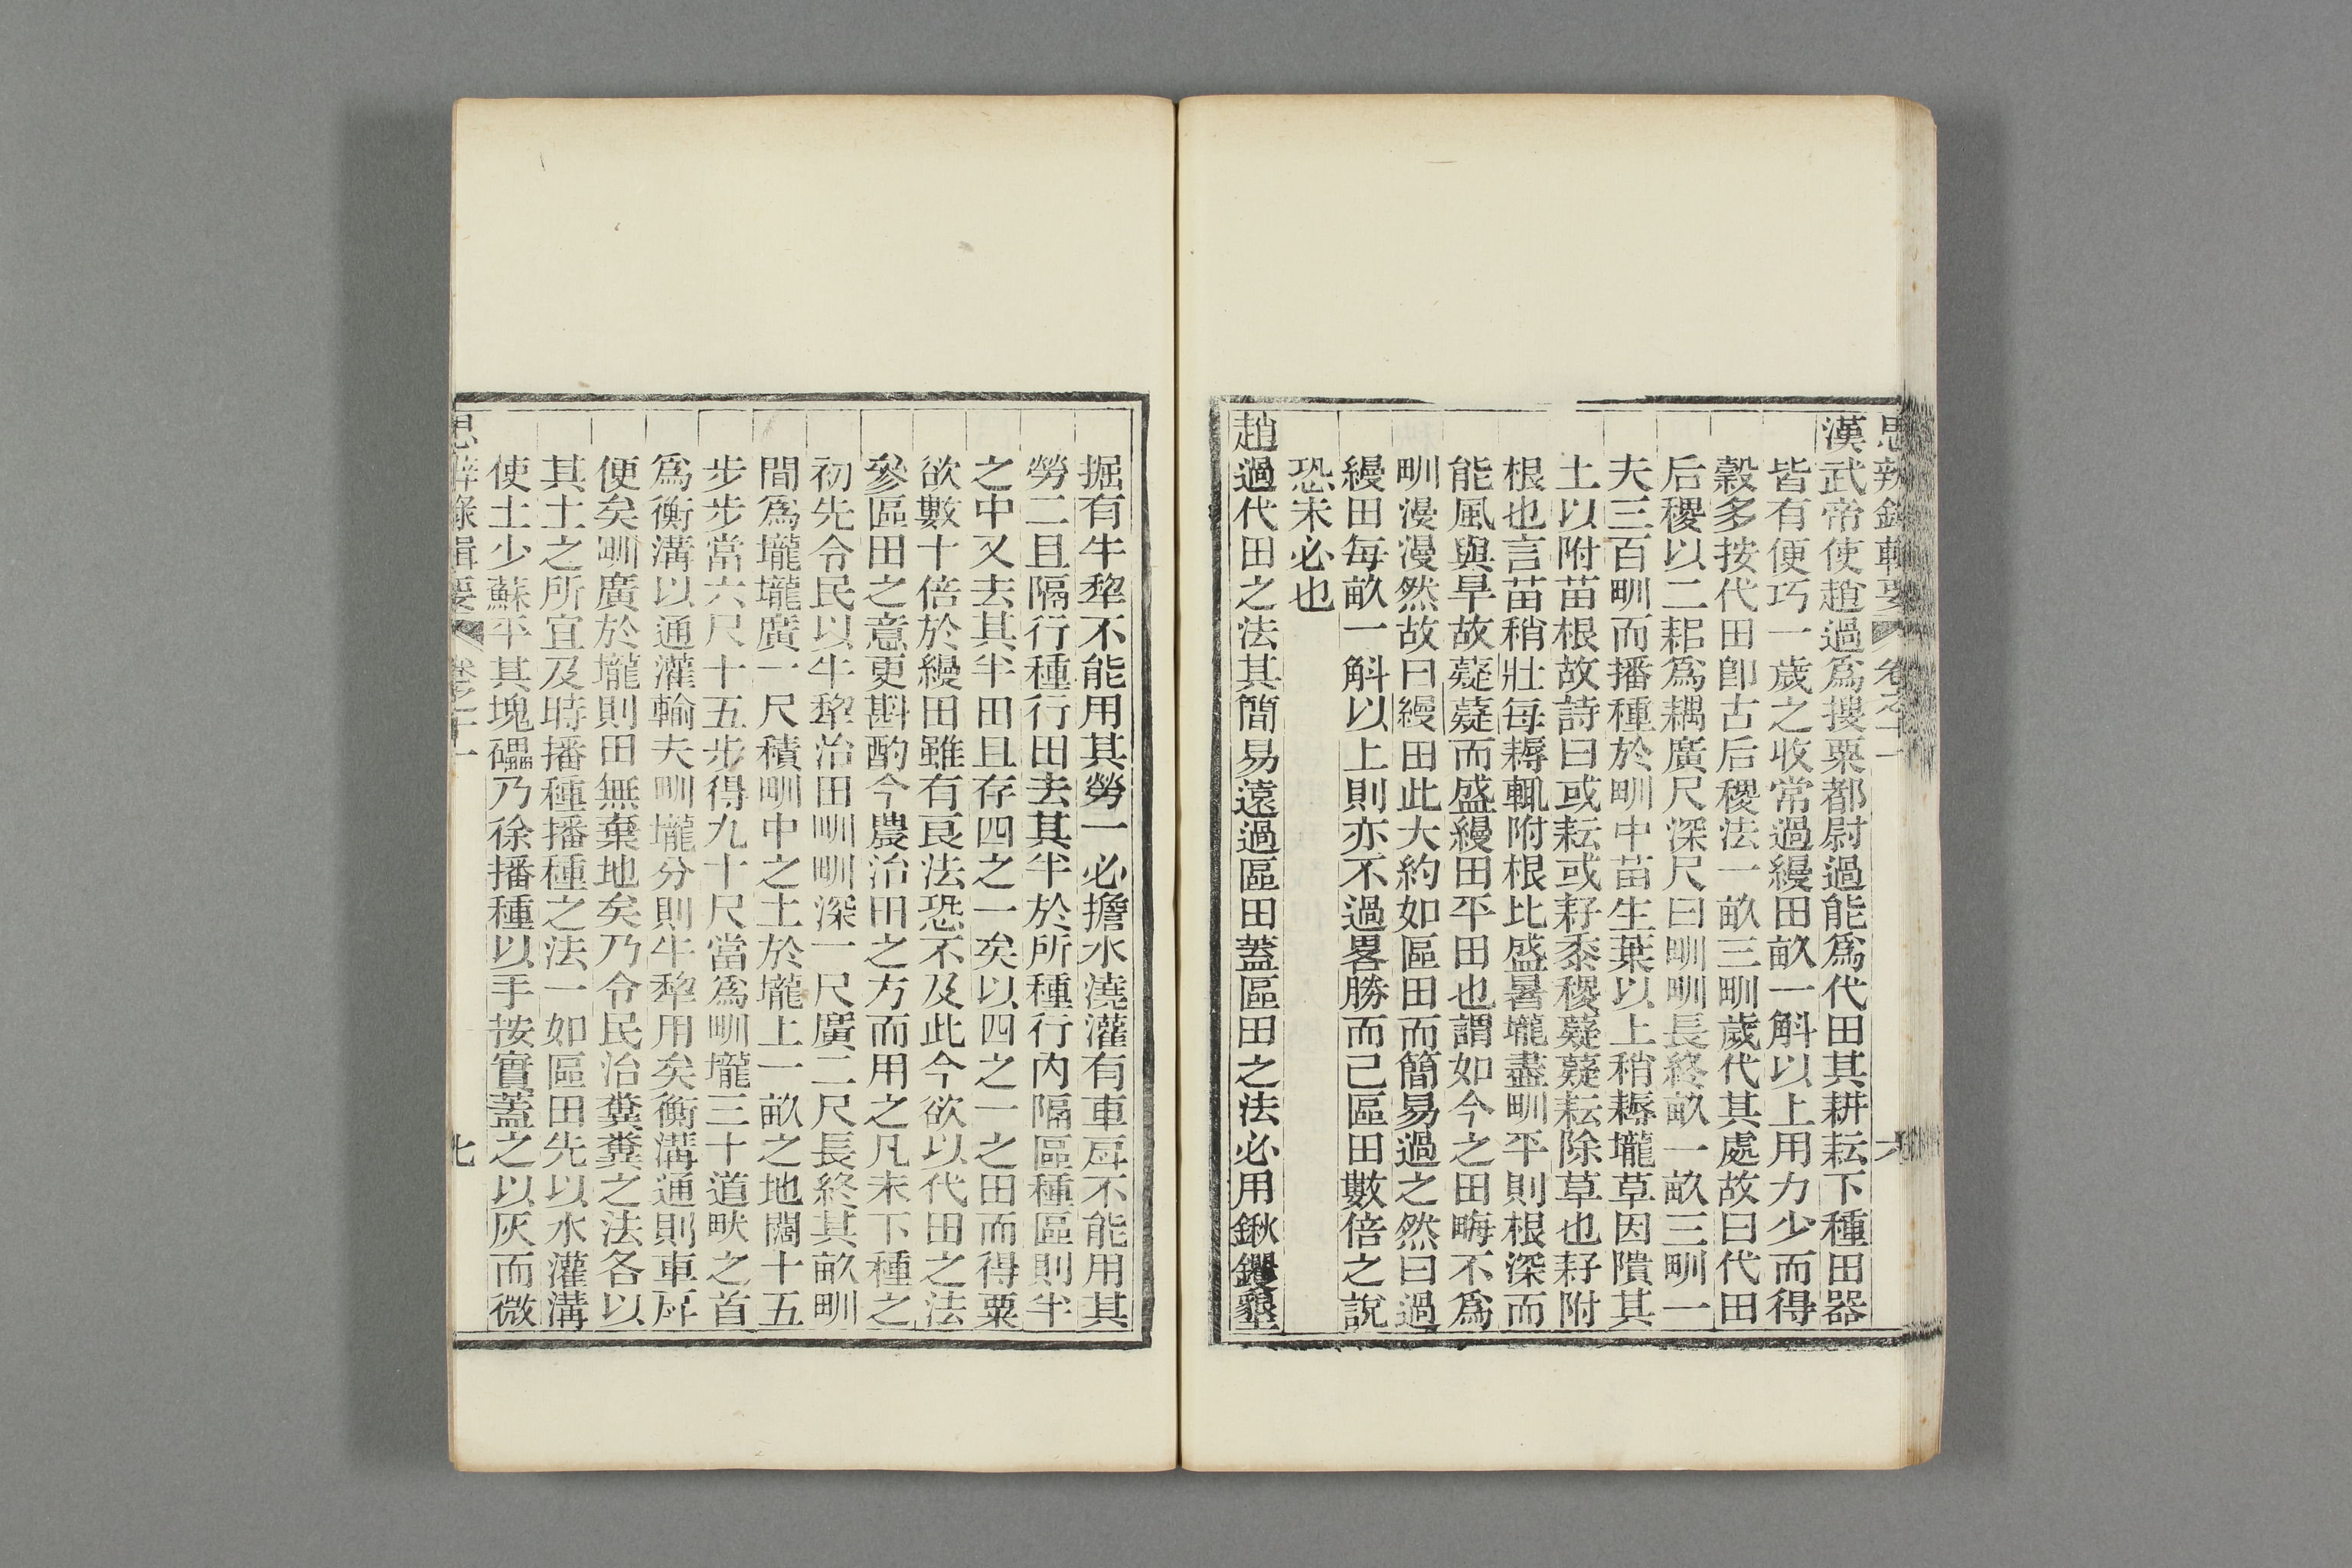 思辨錄輯要 卷之十一 六
漢武帝使趙過爲搜粟都尉過能爲代田其耕耘下種田器
皆有便巧一歲之收常過縵田畝一斛以上用力少而得
穀多按代田卽古后稷法一畝三甽歲代其處故曰代田
后稷以二耜爲耦廣尺深尺曰甽甽長終畝一畝三甽一
夫三百甽而播種於甽中苗生葉以上稍耨壠草因隤其
土以附苗根故詩曰或耘或耔黍稷薿薿耘除草也耔附
根也言苗稍壯每耨輒附根比盛暑壠盡甽平則根深而
能風與旱故薿薿而盛縵田平田也謂如今之田畮不爲
甽漫漫然故曰縵田此大約如區田而簡易過之然曰過
縵田每畝一斛以上則亦不過畧勝而已區田數倍之說
恐未必也
趙過代田之法其簡易遠過區田蓋區田之法必用鍬钁墾
掘有牛犂不能用其勞一必擔水澆灌有車戽不能用其
勞二且隔行種行田去其半於所種行內隔區種區則半
之中又去其半田且存四之一矣以四之一之田而得粟
欲數十倍於縵田雖有良法恐不及此今欲以代田之法
參區田之意更斟酌今農治田之方而用之凡未下種之
初先令民以牛犂治田甽甽深一尺廣二尺長終其畝甽
間爲壠壠廣一尺積甽中之土於壠上一畝之地闊十五
步步當六尺十五步得九十尺當爲甽壠三十道畎之首
爲衡溝以通灌輸夫甽壠分則牛犂用矣衡溝通則車戽
便矣甽廣於壠則田無棄地矣乃令民治糞糞之法各以
其土之所宜及時播種播種之法一如區田先以水灌溝
使土少蘇平其塊礧乃徐播種以手按實蓋之以灰而微
思辨錄輯要 卷之十一 七